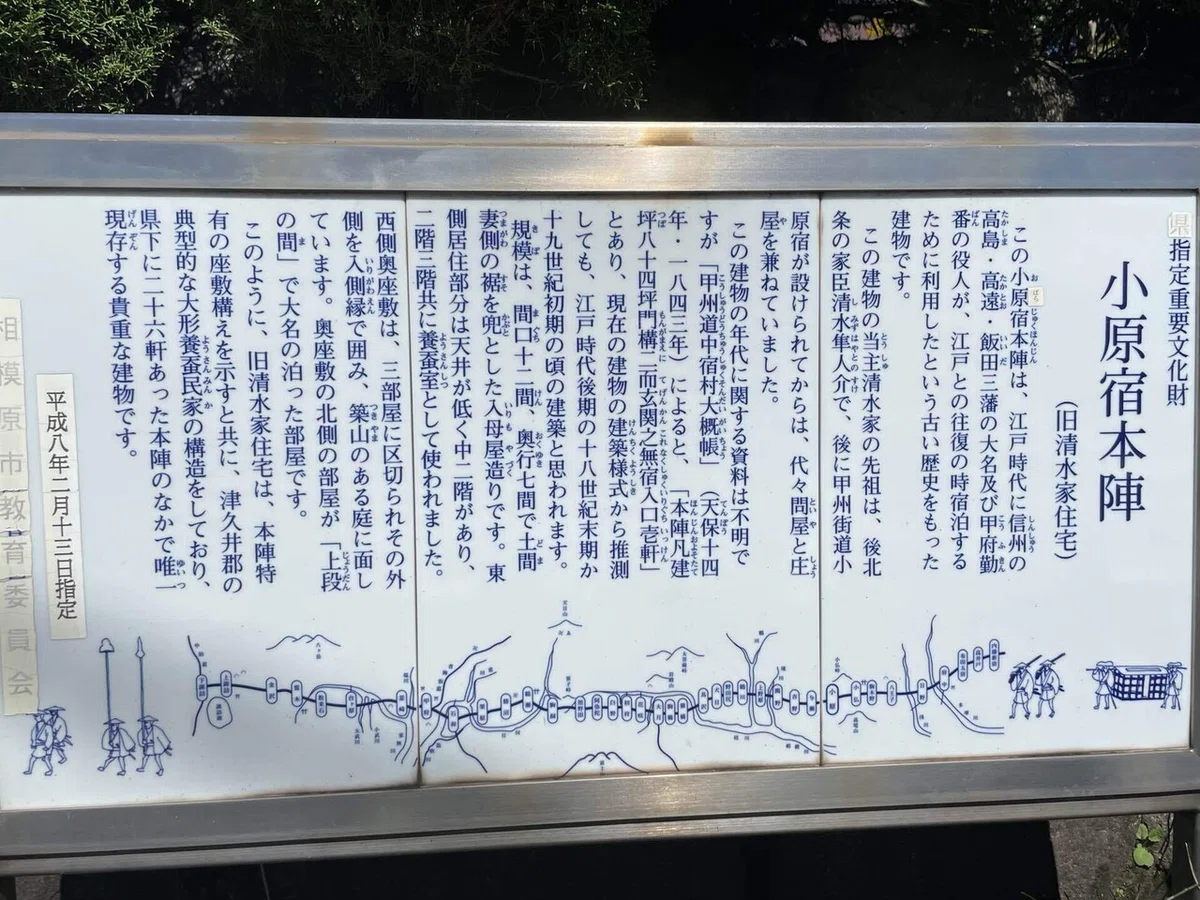 県指定重要文化財
小原宿本陣
(旧清水家住宅)
この小原宿本陣は、江戸時代に信州の
高島・高遠・飯田三藩の大名及び甲府勤
番の役人が、江戸との往復の時宿泊する
ために利用したという古い歴史をもった
建物です。
この建物の当主清水家の先祖は、後北
条の家臣清水隼人介で、後に甲州街道小
原宿が設けられてからは、代々問屋と庄
屋を兼ねていました。
この建物の年代に関する資料は不明で
すが「甲州道中宿村大概帳」(天保十四
年・一八四三年)によると、「本陣凡建
坪八十四坪門構二而玄関之無宿入口壱軒」
とあり、現在の建物の建築様式から推測
しても、江戸時代後期の十八世紀末期か
十九世紀初期の頃の建築と思われます。
規模は、間口十二間、奥行七間で土間
妻側の裾を兜とした入母屋造りです。東
側居住部分は天井が低く中二階があり、
二階三階共に養蚕室として使われました。
西側奥座敷は、三部屋に区切られその外
側を入側縁で囲み、築山のある庭に面し
ています。奥座敷の北側の部屋が「上段
の間」で大名の泊った部屋です。
このように、旧清水家住宅は、本陣特
有の座敷構えを示すと共に、津久井郡の
典型的な大形養蚕民家の構造をしており、
県下に二十六軒あった本陣のなかで唯一
現存する貴重な建物です。
平成八年二月十三日指定
相模原市教育委員会